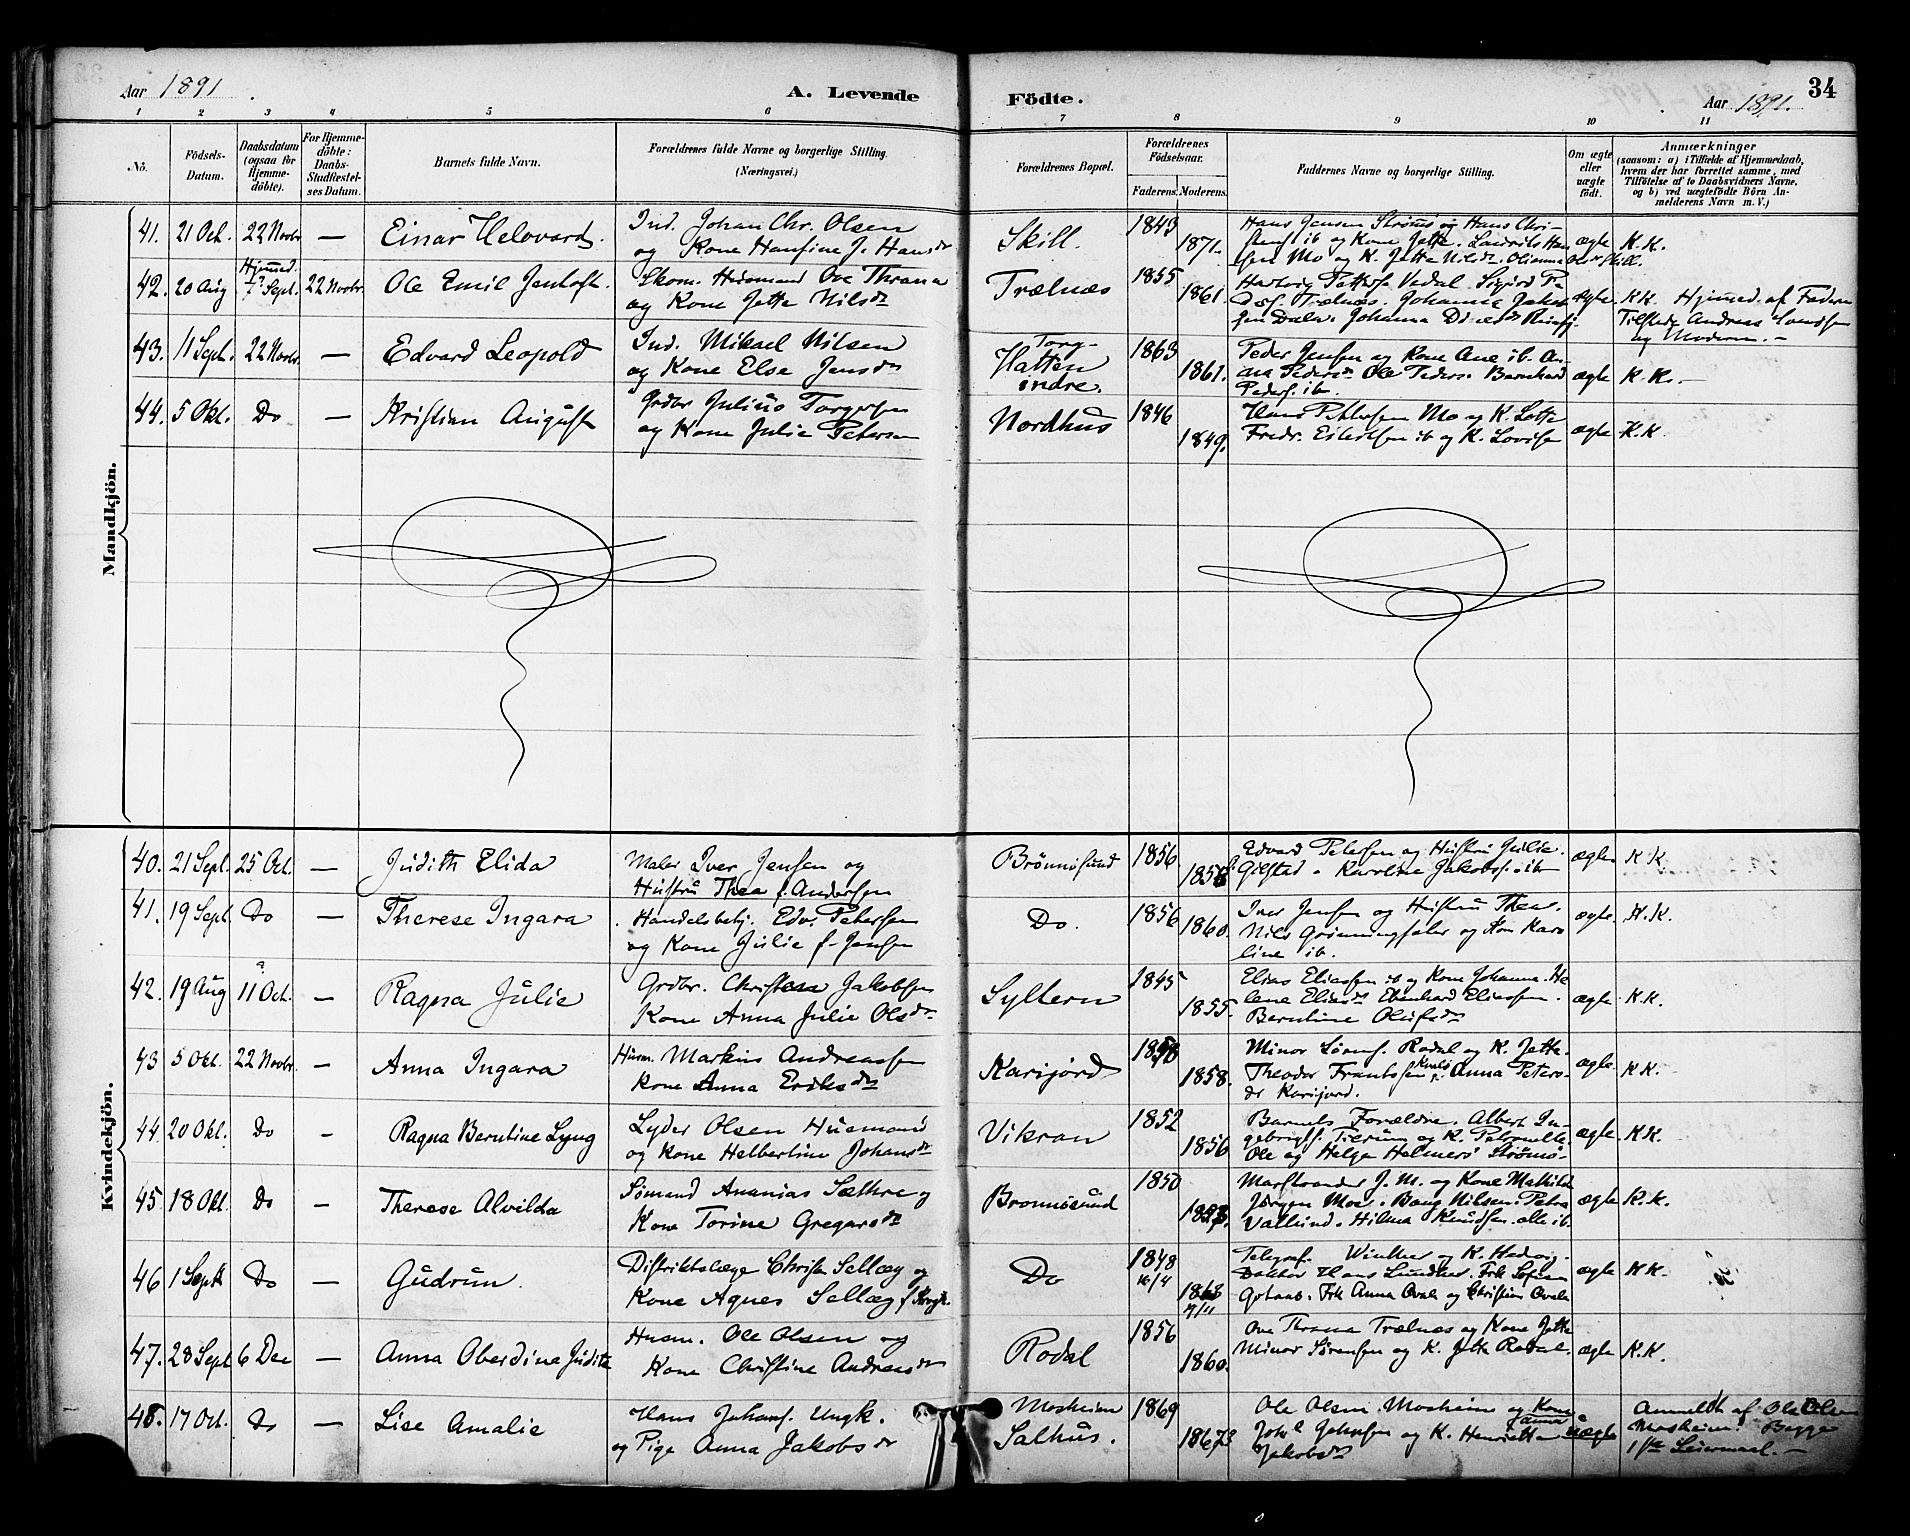 Aar 1891.
A. Levende
Födte.
Aar 1891.
34
1 2 3 4 5 6 7 8 9 10 11
No.
Födsels-
Datum.
Daabsdatum
(ogsaa for
Hjemme-
döbte).
For Hjemme-
döbte:
Daabs-
Stadfæstel-
ses Datum.
Barnets fulde Navn.
Forældrenes fulde Navne og borgerlige Stilling.
(Næringsvei.)
Forældrenes Bopæl.
Forældrenes
Födselsaar.
Faderens. Moderens.
Faddernes Navne og borgerlige Stilling.
Om ægte
eller
uægte
født.
Anmærkninger
(saasom: a) i Tilfælde af Hjemmedaab,
hvem der har forrettet samme, med
Tilföielse af to Daabsvidners Navne,
og b) ved uægtefödte Börn An-
melderens Navn m. V.)
Mandkjön.
41. 21 Oct. 22 Novbr — Einar Helovard.
Ind. Johan Chr. Olsen
og Kone Hansine J. Hansdr
Skill. 1843 1871.
Hans Jensen Strømø og Hans Chri-
stens. ib og Kone Jette. Laurits Han
sen Mo og K. Jette Nilsdr. Skill.
ægte K.K.
42. 20 Aug Hjemmed. 7 Sept. 22 Novbr. Ole Emil Jentoft
Skom. Husmand Ove Thrana
og Kone Jette Nilsdr
Trælnæs 1855 1861.
Hartvig Petters. Vedal. Sigurd Pe
Trælnæs. Johanna Jakob
sen Dale. Johanna
ægte K.K. Hjemmed. af Faderen
Tilstede Andreas
og Moderen. —
43. 11 Sept. 22 Novbr. — Edvard Leopold
Ind. Mikael Nilsen
og Kone Else Jensdr
Torg-
Hatten
indre. 1863 1861.
Peder Jensen og Kone Ane ib. An-
na Pedersdr Ole Peders. Bernhard
Peders. ib.
ægte K.K. —
44. 5 Okt. Do — Kristian August
Grdbr Julius Torgersen
og Kone Julie Petersen
Nordhus 1846 1849.
Hans Pettersen Mo og K. Lotte
Fredr. Eilertsen ib og K. Lovise
ægte K.K.
Kvindekjön.
40. 21 Sept. 25 Oct. — Judith Elida
Maler Iver Jensen og
Hustru Thea f. Andersen
Brønnøsund 1856
Edvard Petersen og Hustru Julie.
Gilstad. Karoline Jakobs. ib
ægte K.K.
41. 19 Sept. Do — Therese Ingara
Handelsbetj. Edv. Petersen
og Kone Julie f. Jensen
Do. 1856 1860.
Iver Jensen og Hustru Thea.
Nils Grønningsæter og Kon Karo
line ib.
ægte. K.K.
42. 19 Aug 11 Oct. — Ragna Julie
Grdbr. Christen Jakobsen
Kone Anna Julie Olsdr
Syltern 1845 1855.
Elias Eliassen ib og Kone Johanna. He
lene Eliasdr Edenhard Eliassen.
Berntine Olufsdr
ægte K.K.
43 5 Okt. 22 Novbr. — Anna Ingara
Husm. Markus Andreassen
Kone Anna Eriksdr
Karijord 1858.
Minor Sørens. Rodal og K. Jette.
Theodor Frantssen Anna Peters-
dr Karijord.
ægte K.K.
44 20 Okt. Do — Ragna Berntine Lyng
Lyder Olsen Husmand
og Kone Helbertine Johansdr
Vikran 1852 1856
Barnets Forældre. Albert In-
gebrigts. Tilrum og K. Petronelle.
Ole og Helga Helmers Strømø.
ægte. K.K.
45 18 Okt. Do — Therese Alvilda
Sømand Ananias Sæthre og
Kone Torine Gregarsdr
Bronnøsund 1850
Marstrander J. M. og Kone Mathilde
Jørgen Moe. Bang Nilsen. Petra
Vallund. Hilma Knudsen alle ib.
ægte K.K.
46 1 Septb Do — Gudrun.
Distriktslæge Christen Sellæg og
Kone Agnes Sellæg f.
Do 1848 16/4 1863 7/11
Telegraf. Winther og K. Hedvig.
Doktor Hans Lundher. Frk Sofie
Frk Anna Qvale og Christian Qvale
ægte K.K.
47. 28 Sept 6 Dec — Anna Oberdina Judith
Husm. Ole Olsen og
Kone Christine Andreasdr
Rodal 1856 1860.
Ove Thrana Trælnæs og Kone Jette
Minor Sørensen og K. Jette Rodal.
ægte K.K.
48. 17 Oct. Do — Lise Amalie
Hans Johans. Ungk.
og Pige Anna Jakobsdr
Mosheim
Salhus. 1869
Ole Olsen Mosheim og Kone
Anna
Johansen og K. Henriette
Jakobsdr
uægte Anmeldt af Ole Olsen
Mosheim. Begge
1ste Leiermaal. —